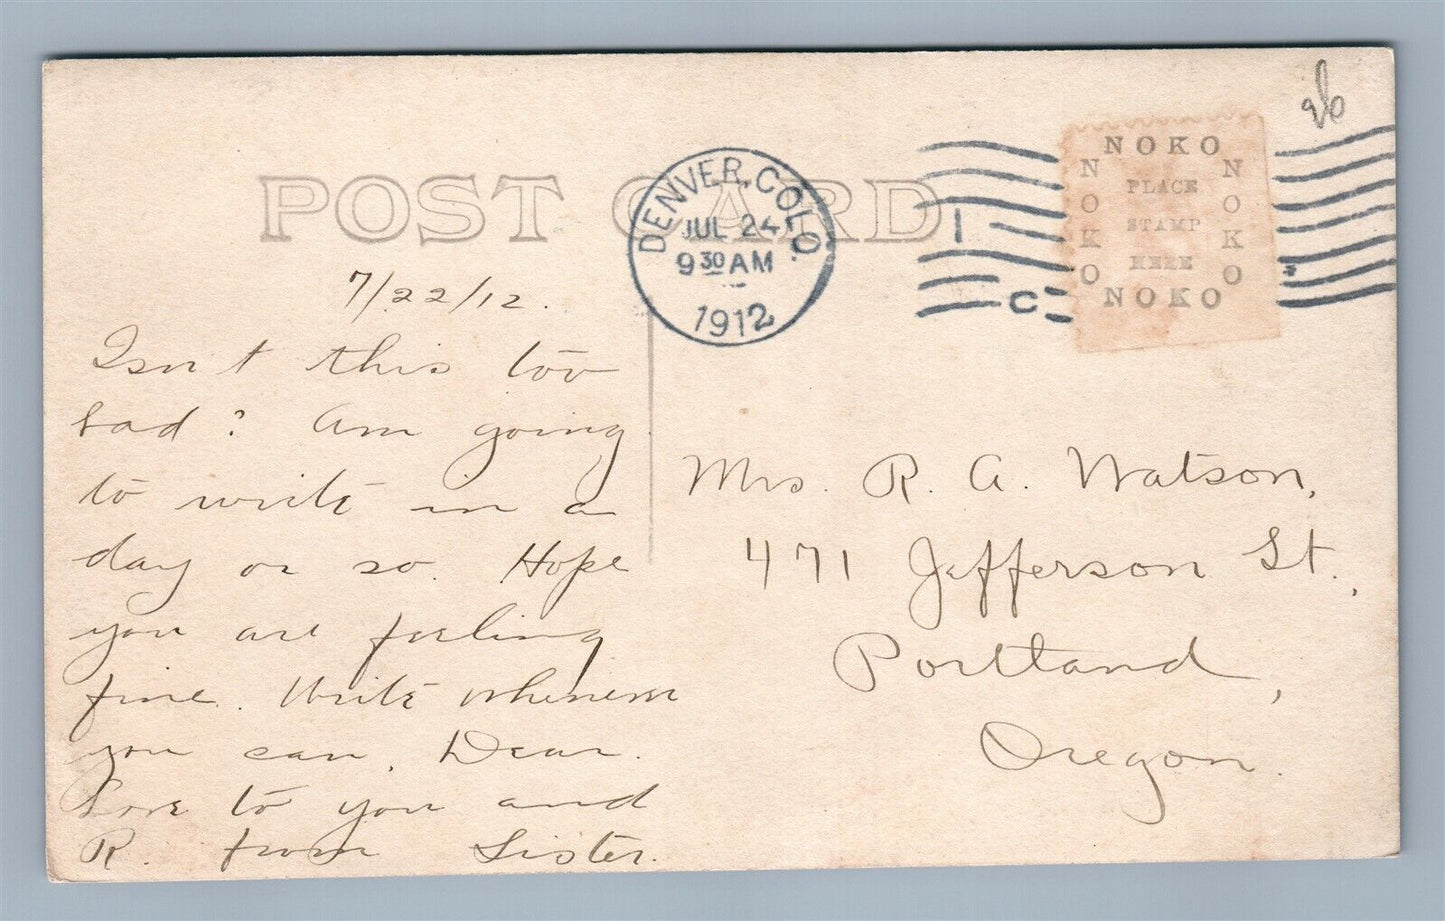 POST CARD
DENVER, COLO.
JUL 24
9 30 AM
1912
1
C
NOKO
NOKO
NOKO
PLACE
STAMP
HERE
NOKO
7/22/12.
Isn't this too
bad? Am going
to write in a
day or so. Hope
you are feeling
fine. Write whenever
you can. Dear.
Love to you and
R. from Sister.
Mrs. R. A. Watson,
471 Jefferson St.,
Portland,
Oregon.